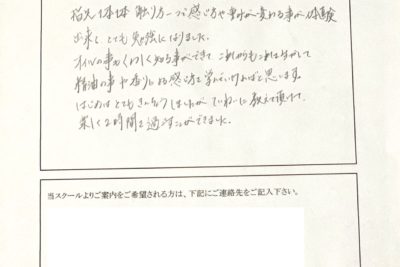 触り方一つで感じ方や動きが変わる事が体験
出来、とても勉強になりました。
オイルの事もくわしく知る事ができて、これからもこれを生かして
精油の事や香りによる感じ方を学んでいければと思います。
はじめはとてもきんちょうしましたが、ていねいに教えて頂けて、
楽しく2時間を過すことができました。
当スクールよりご案内をご希望される方は、下記にご連絡先をご記入下さい。